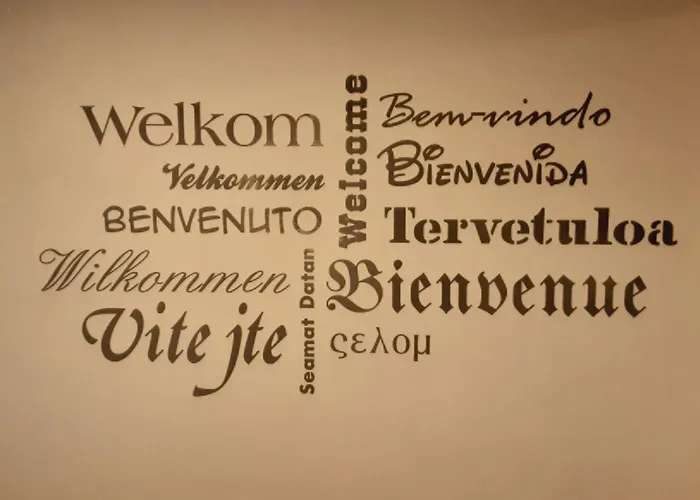 Welkom
Velkommen
BENVENUTO
Wilkommen
Vite jte
Welcome
Seamat Datan
Bem-vindo
BIENVENIDA
Tervetuloa
Bienvenue
ςελομ